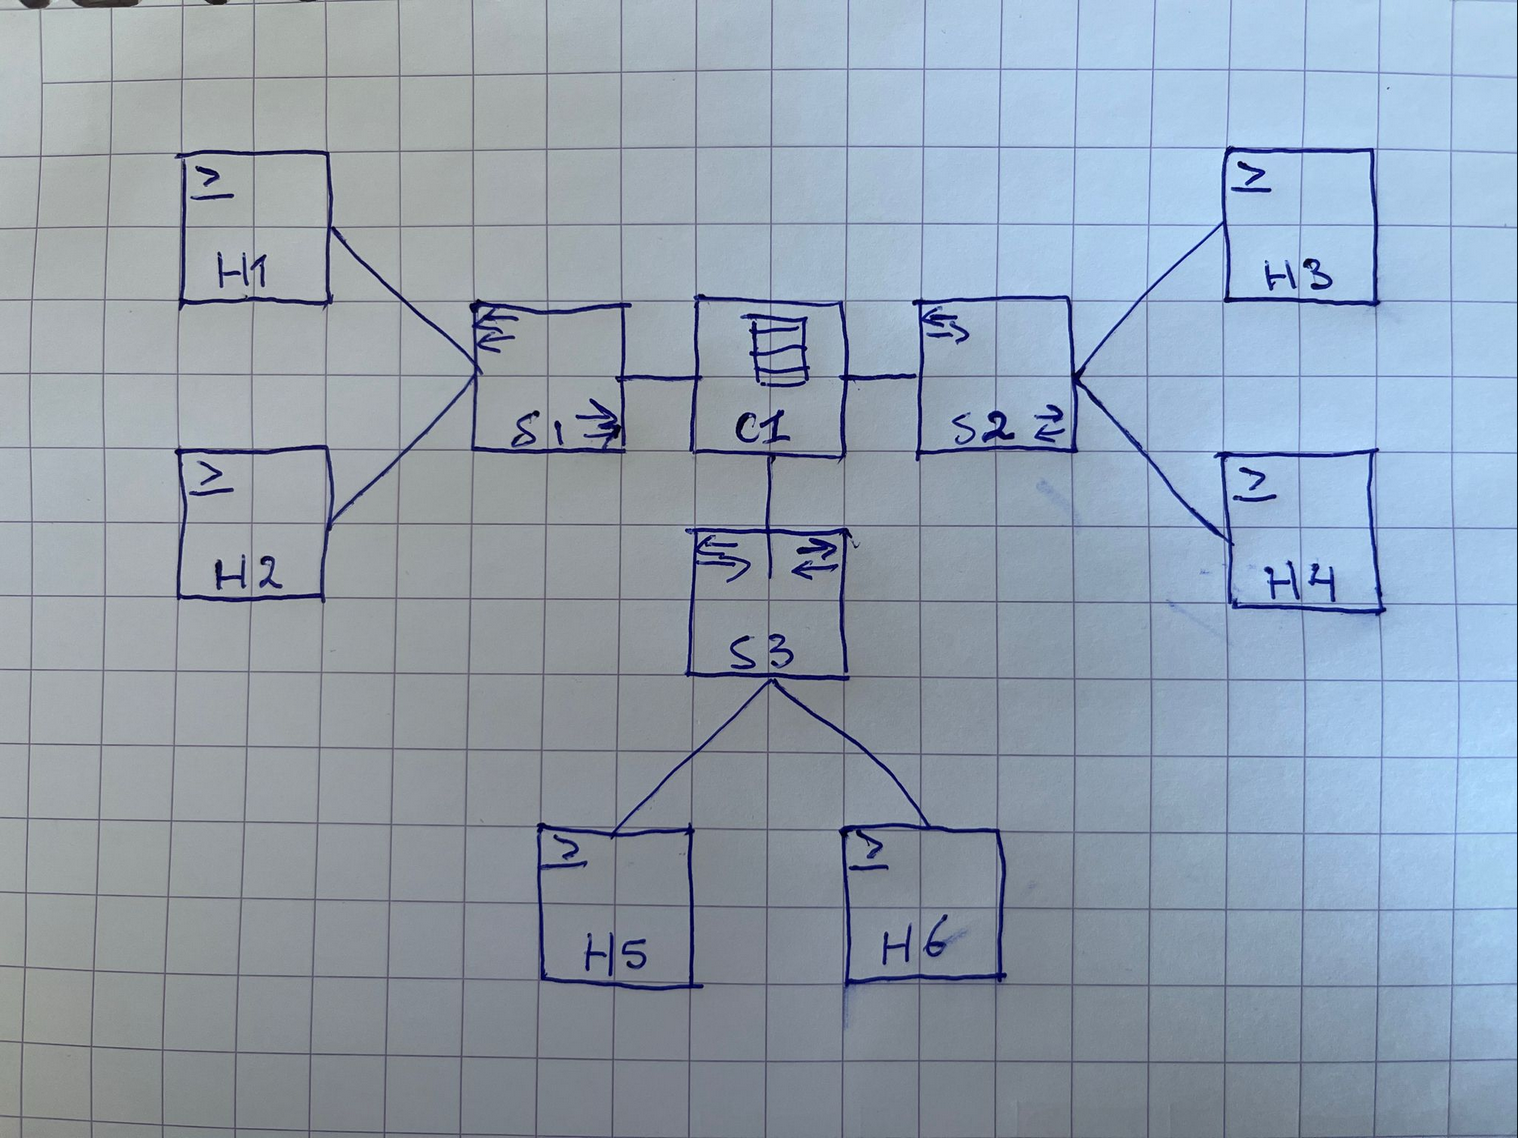 H1
H3
S1
C1
S2
H2
H4
S3
H5
H6